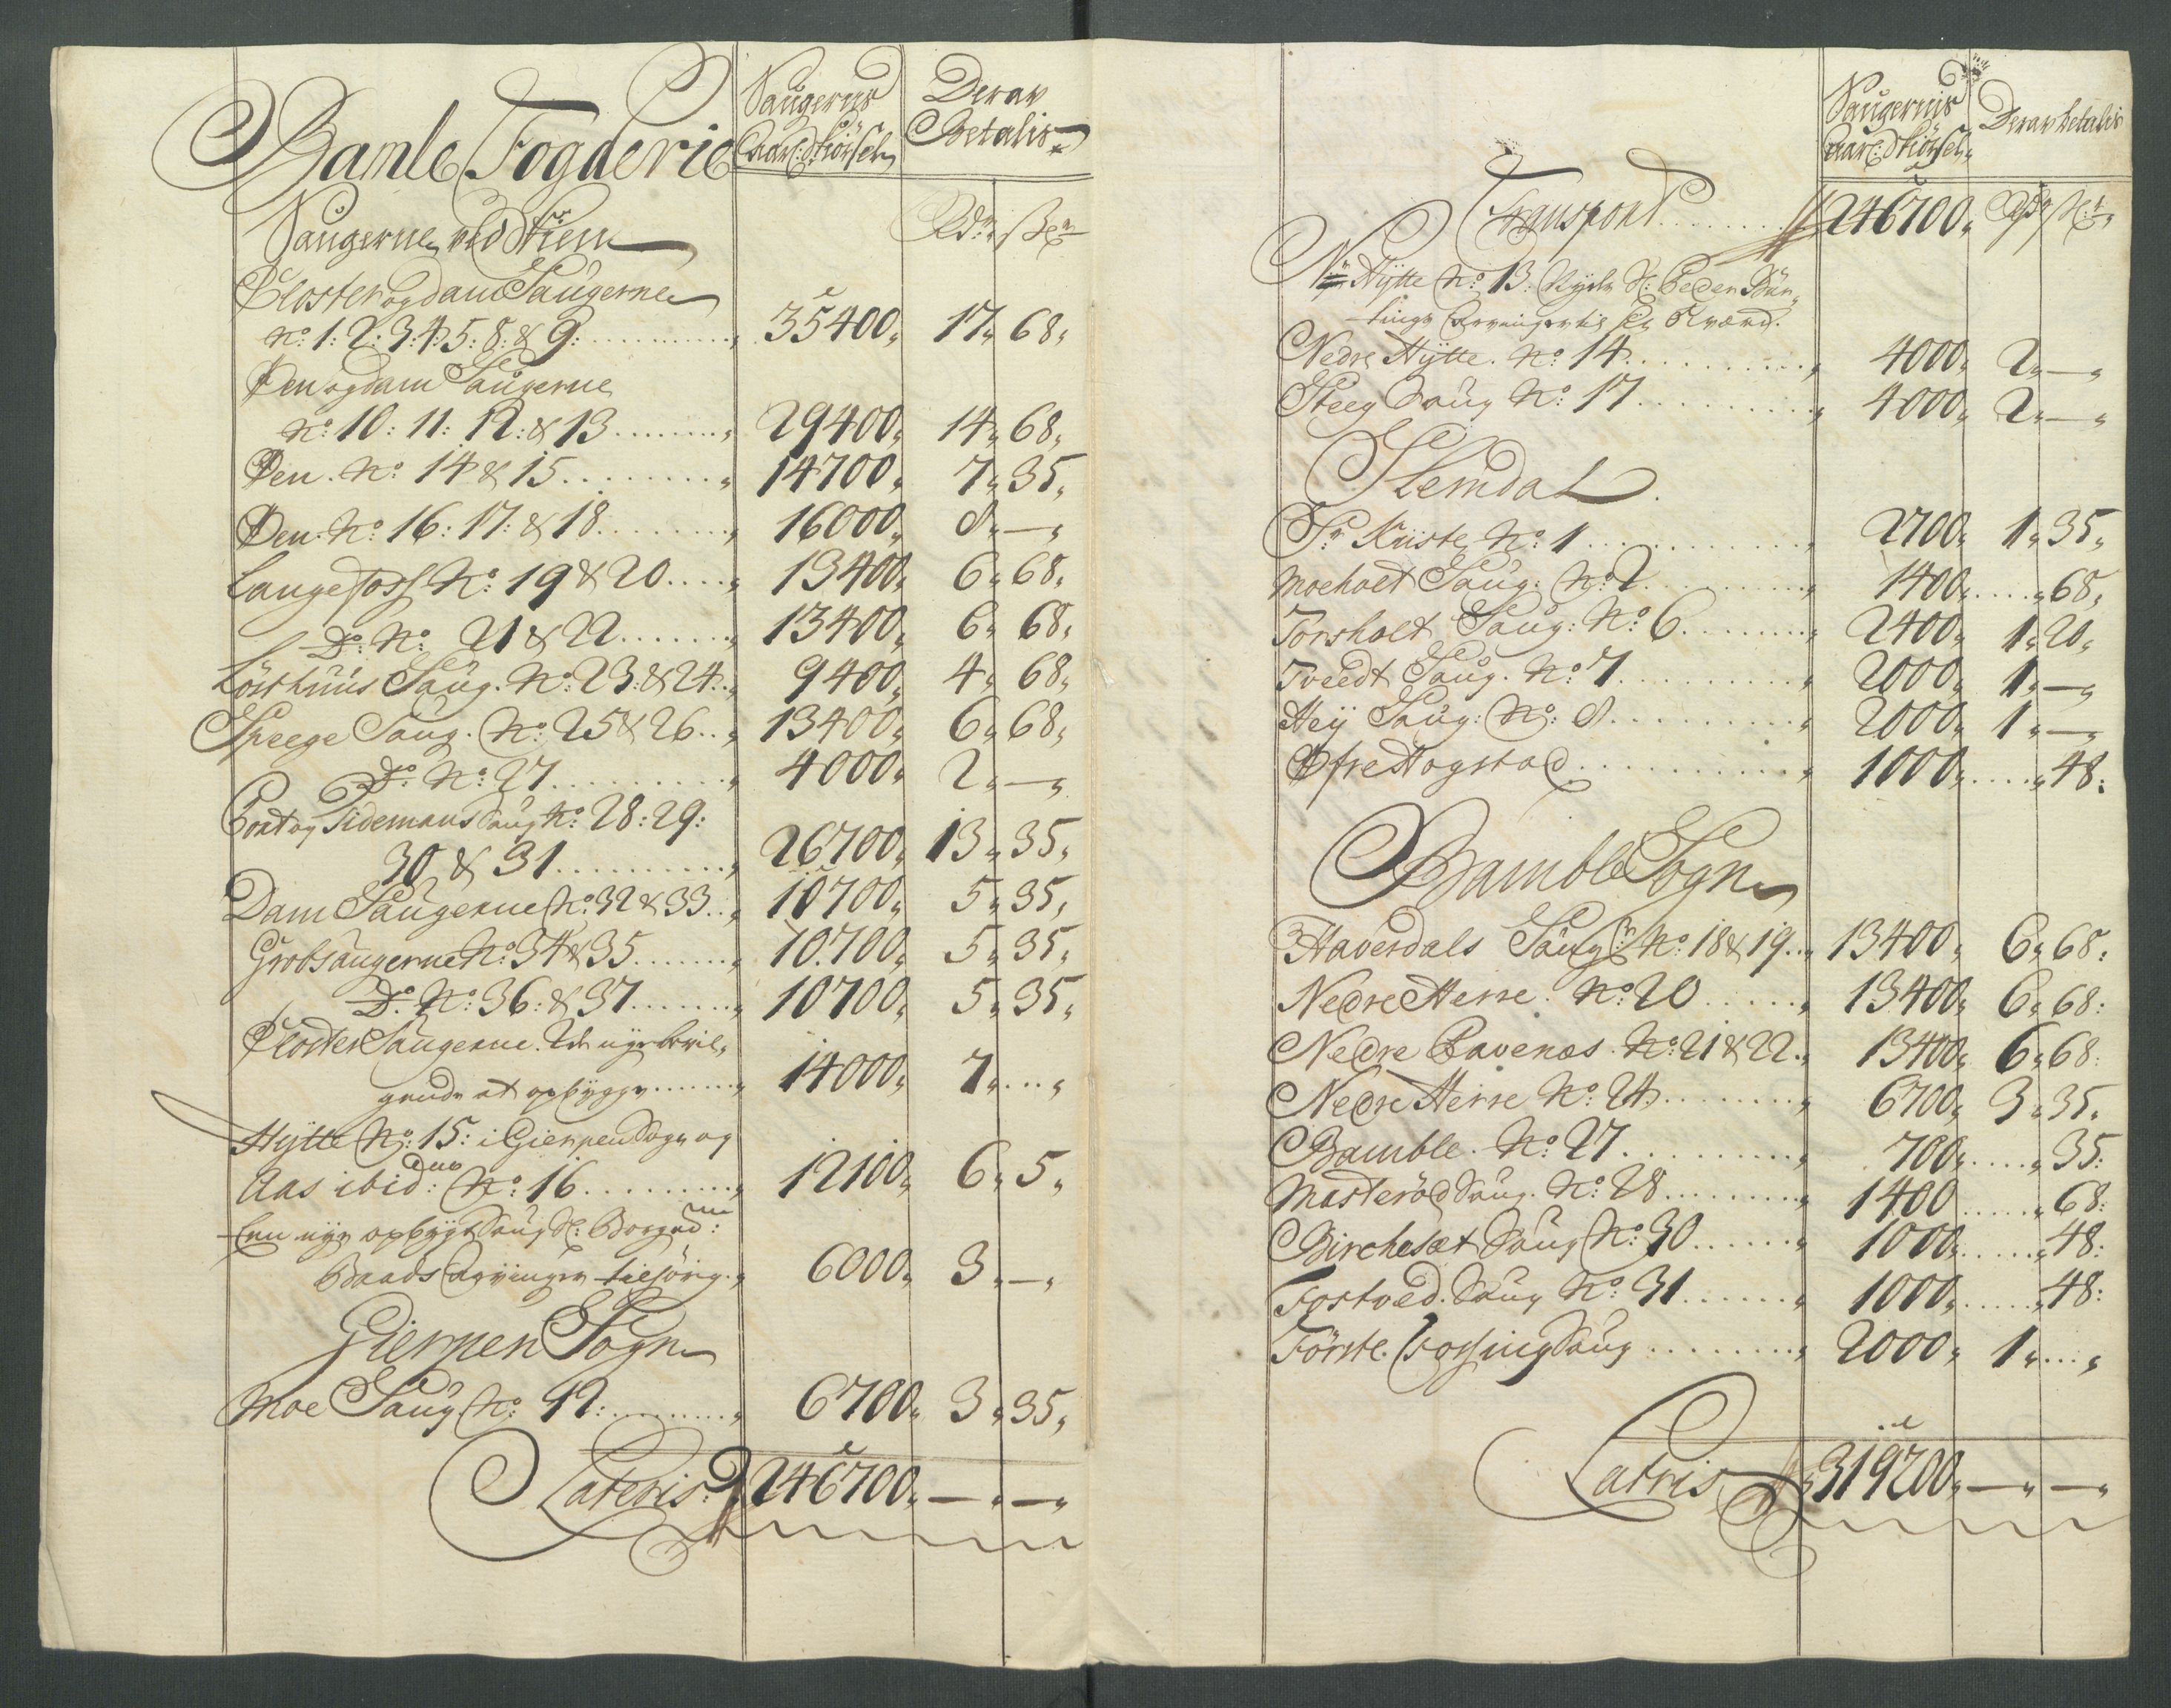 Bamle Fogderie
Saugernes Aarl: Skiörsel
Derav Betalis
Saugerne ved Skien
Rdr
Closter og dam Saugerne
No: 1: 2: 3: 4: 5: 8: & 9: 35400 17 68
Øen og dam Saugerne
No: 10: 11: 12: & 13 29400 14 68
Øen No: 14 & 15 14700 7 35
Øen No: 16: 17: & 18 16000 8 —
Langefoss No: 19 & 20 13400 6 68
Do: No: 21 & 22 13400 6 68
Löshuus Saug No: 23: & 24 9400 4 68
Skeege Saug No: 25 & 26 13400 6 68
Do: No: 27 4000 2 —
Bent og Tidemans Saug No: 28: 29:
30 & 31 26700 13 35
Dam Saugerne No: 32 & 33 10700 5 35
Grobsaugerne No: 34 & 35 10700 5 35
Do: No: 36: & 37 10700 5 35
Closter Saugerne 2de nye bevil-
gende at opbygge 14000 7
Hytte No: 15: i Gierpen Sogn og
Aas ibidem: No: 16 12100 6 5
Een nye opbygt Saug
Baads Arvinger tilhörig 6000 3 —
Gierpen Sogn
Moe Saug No: 42: 6700 3 35
Lateris 246700 — —
Saugernis Aarl: Skiörsel
Derav betalis
Transport 246700 Rdr
Hytte No: 13: Peder
Arvinger
Nedre Hytte No: 14 4000 2 —
Steeg Saug No: 17 4000 2 —
Slemdal
Kiiste No: 1 2700 1 35
Moeholt Saug: No: 2 1400 68
Torsholt Saug: No: 6 2400 1 20
Tveedt Saug: No: 7 2000 1 —
Heÿ Saug: No: 8 2000 1 —
Øfre Hogstad 1000 48
Bamble Sogn
Haverdals Saug No: 18 & 19 13400 6 68
Nedre Herre No: 20 13400 6 68
Nedre Ravenæs No: 21 & 22 13400 6 68
Nedre Herre No: 24 6700 3 35
Bamble No: 27 700 35
Masteröd Saug No: 28 1400 68
Birchesæt Saug No: 30 1000 48
Fostved Saug No: 31 1000 48
Förste Saug 2000 1
Latris 319200 — —